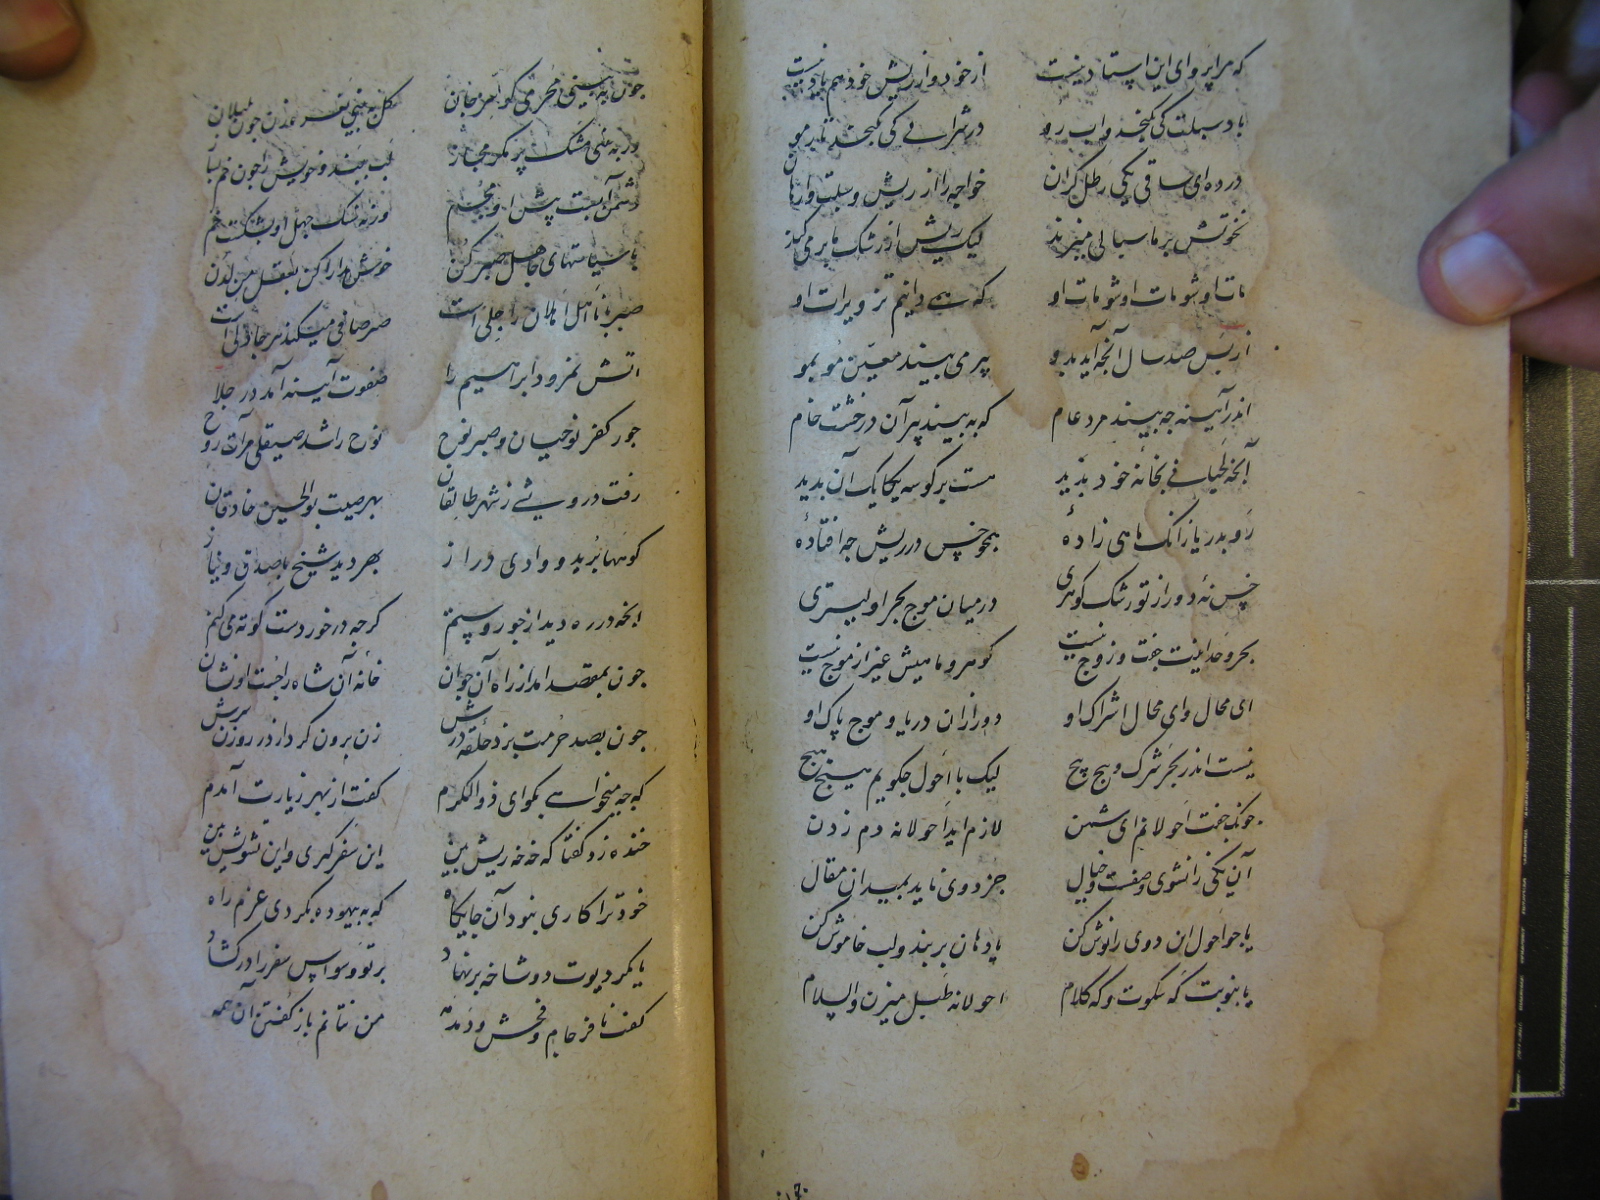 که مرا پروای این استاد نیست از خود و از ریش خود هم یاد نیست
باد سبلت کی کنجد و آب رو در شرابی کی کنجد تار مو
در ده ای ساقی یکی رطل کران خواجه را از ریش و سبلت وارهان
نخوتش بر ما سبالی میزند لیک ریش از رشک ما بر می‌کند
مات او شو مات او شو مات او که همی دانیم تزویرات او
از پس صد سال آنجه آید بدو پیر می بیند معین مو بمو
اندر آیینه جه بیند مرد عام که به بیند پیر آن در خشت خام
آنجه لحیانی بخانه خود بدید هست بر کوسه یکایک آن بدید
رو بدریا زانک ماهی زادهٔ همجو خس در ریش جه افتادهٔ
خس نهٔ دور از تو رشک کوهری در میان موج بحر اولیتری
بحر وحدانیت جفت و زوج نیست کوهر و ماهیش غیر از موج نیست
ای محال و ای محال اشراک او دور ازان دریا و موج پاک او
نیست اندر بحر شرک و پیج پیج لیک با احول جکویم هیج هیج
جونک جفت احولانم ای شمن لازم اید احولانه دم زدن
آن یکی زانسوی وصفست و خیال جز دوی ناید بمیدان مقال
یا جو احول این دوی را نوش کن یا دهان بربند و لب خاموش کن
یا بنوبت که سکوت و که کلام احولانه طبل میزن والسلام
جون به بینی محرمی کو سر جان کل به بینی نعره زن جون بلبلان
جون به بینی مشک پر مکر و مجاز لب ببند و خویش را جون خم بساز
دشمن آبست پیش او مجنب ورنه سنک جهل او بشکست خم
با سیاستهای جاهل صبر کن خوش مدارا کن بعقل من لدن
صبر با نااهل اهلان را جلی است صبر صافی میکند هر جا دلی است
اتش نمرود ابراهیم را صفوت آیینه آمد در جلا
جور کفر نوحیان و صبر نوح نوح را شد صیقلی مرآت روح
رفت درویشی ز شهر طالقان بهر صیت بوالحسین خارقان
کوهها ببرید و وادی دراز بهر دید شیخ با صدق و نیاز
انجه در ره دید از جور و ستم کرجه در خوردست کوته می‌کنم
جون بمقصد امد از راه آن جوان خانهٔ آن شاه را جست او نشان
جون بصد حرمت بزد حلقه درش زن برون کرد از در روزن سرش
که جه میخواهی بکو ای ذوالکرم کفت از بهر زیارت آمدم
خنده زد کفتا که خه خه ریش بین این سفر کیری و این تشویش بین
خود ترا کاری نبود آن جایکاه که به بیهوده بکردی عزم راه
یا مکر دیوت دو شاخه برنهاد بر تو وسواس سفر را در کشاد
کفت نافرجام و فحش و دمدمه من نتانم باز کفتن آن همه